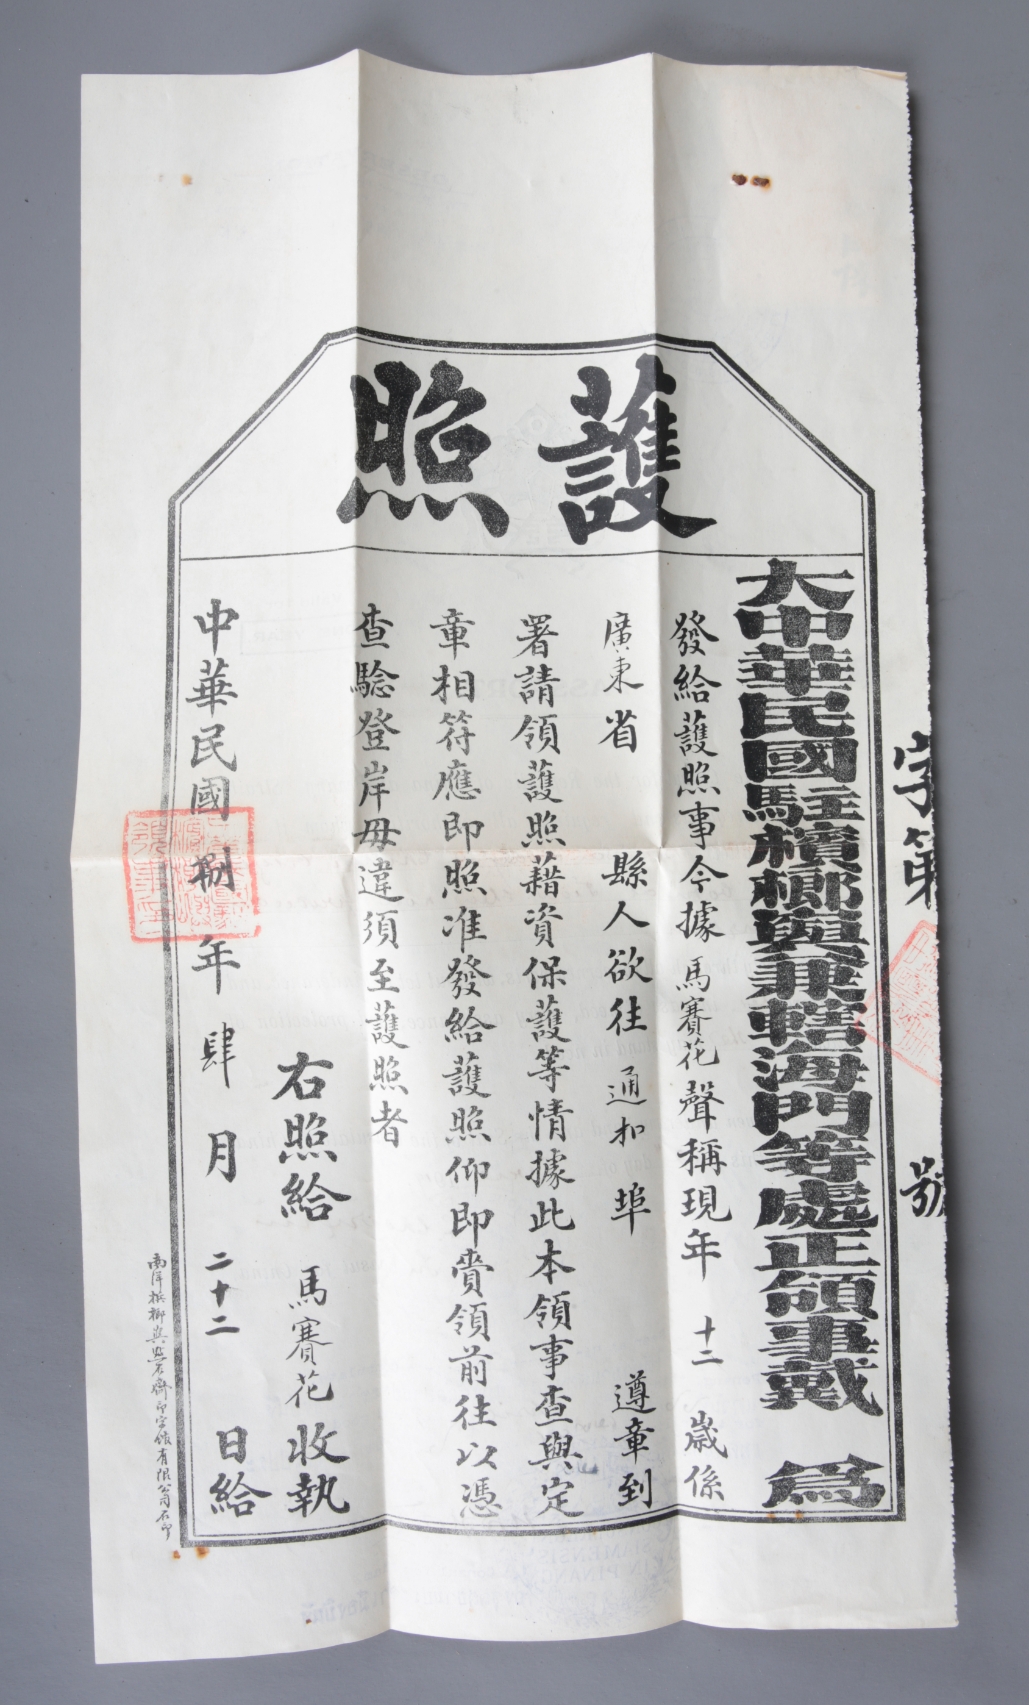 護照
字第 號
大中華民國駐檳榔嶼兼轄海門等處正領事戴 爲
發給護照事今據馬賽花聲稱現年 十二 歲係
廣東省 縣人欲往 通扣 埠 遵章到
署請領護照藉資保護等情據此本領事查與定
章相符應即照准發給護照仰即賫領前往以憑
查驗登岸毋違須至護照者
右照給 馬賽花 收執
中華民國 捌 年 肆 月 二十二 日給
南洋檳榔嶼 印字館有限公司石印